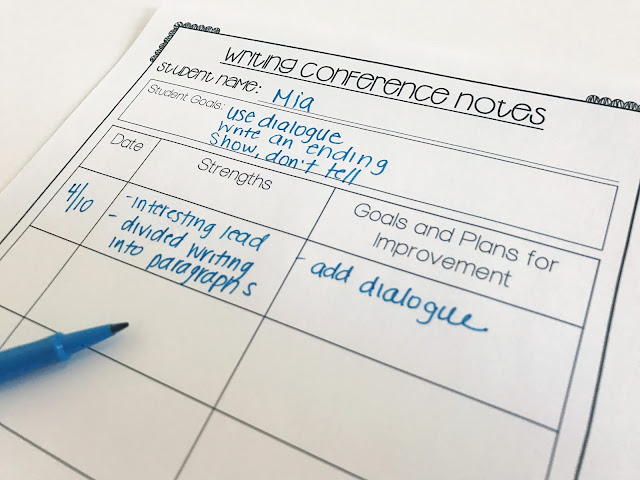 Writing Conference Notes
Student Name: Mia
Student Goals: use dialogue
write an ending
show, don't tell
Date
Strengths
Goals and Plans for
Improvement
4/10
- interesting lead
- divided writing
into paragraphs
- add dialogue